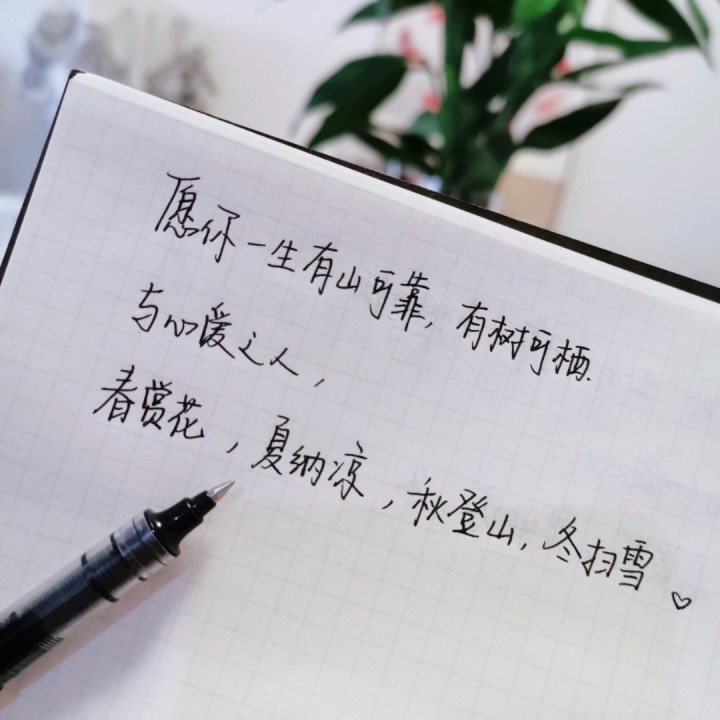 愿你一生有山可靠,有树可栖.
与心爱之人,
春赏花,夏纳凉,秋登山,冬扫雪♡